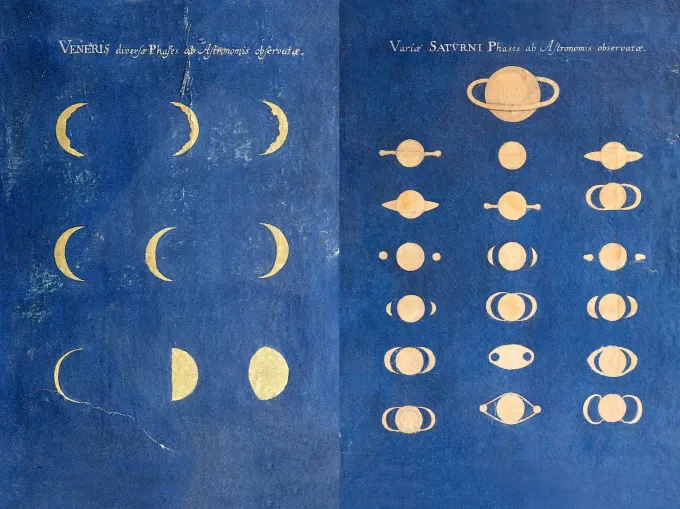 VENERIS diversæ Phases ab Astronomis observatæ.
Variæ SATVRNI Phases ab Astronomis observatæ.